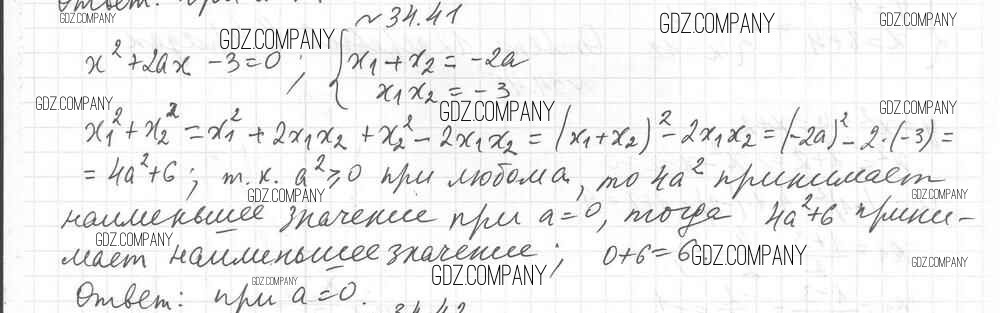 Ответ: при а
GDZ.COMPANY
~ 34.41
GDZ.COMPANY
GDZ.COMPANY
GDZ.COMPANY
x² + 2ax - 3 = 0 ; { x₁ + x₂ = -2a
x₁x₂ = -3
GDZ.COMPANY
GDZ.COMPANY
GDZ.COMPANY
x₁² + x₂² = x₁² + 2x₁x₂ + x₂² - 2x₁x₂ = (x₁+x₂)² - 2x₁x₂ = (-2a)² - 2·(-3) =
= 4a² + 6 ; т.к. a² ≥ 0 при любом a, то 4a² принимает
GDZ.COMPANY
GDZ.COMPANY
наименьшее значение при a = 0, тогда 4a²+6 прини-
GDZ.COMPANY
мает наименьшее значение ; 0+6 = 6.
GDZ.COMPANY
GDZ.COMPANY
GDZ.COMPANY
GDZ.COMPANY
GDZ.COMPANY
Ответ: при a = 0.
34.42